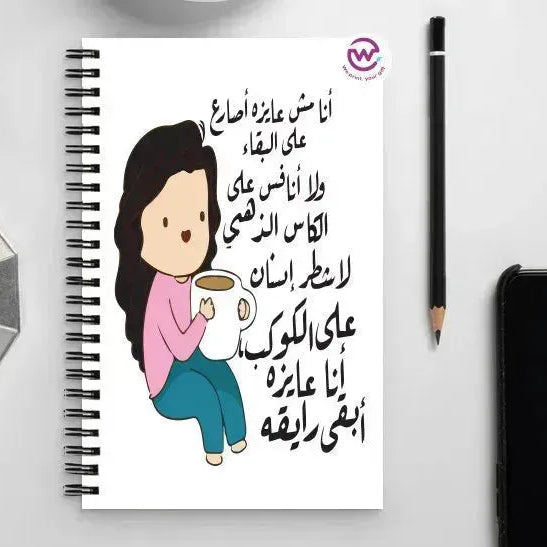 We print, your gift
أنا مش عايزه أصارع
على البقاء
ولا أنافس على
الكاس الذهبي
لاشطر إنسان
على الكوكب،
أنا عايزه
أبقى رايقه